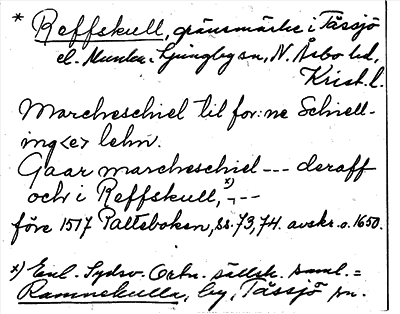 * Reffskull, gränsmärke i Tåssjö
el. Munka-Ljungby sn, N. Åsbo hd,
Krist. l.
Marcheschiel til for:ne Schiell-
ing<e> lehn.
Gaar marcheschiel --- deraff
och i Reffskull,x) ---
före 1517 Palteboken, ss. 73, 74. avskr. o. 1650.
x) Enl. Sydsv. Ortn. sällsk. saml. =
Rammekulla, by, Tåssjö sn.